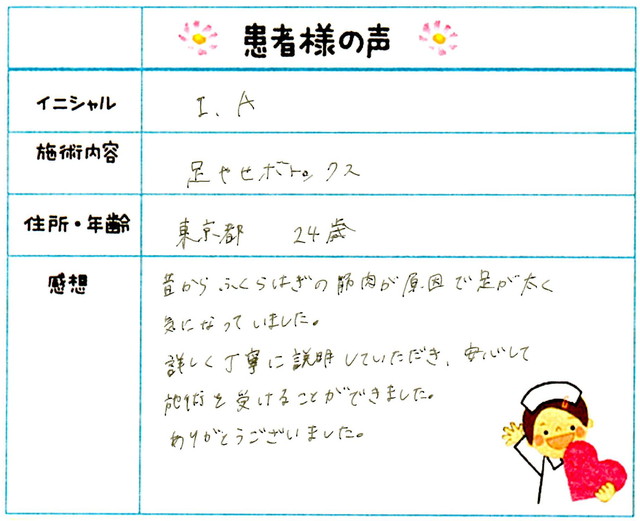 患者様の声
イニシャル I. A
施術内容 足やせボトックス
住所・年齢 東京都 24歳
感想 昔からふくらはぎの筋肉が原因で足が太く
気になっていました。
詳しく丁寧に説明していただき、安心して
施術を受けることができました。
ありがとうございました。